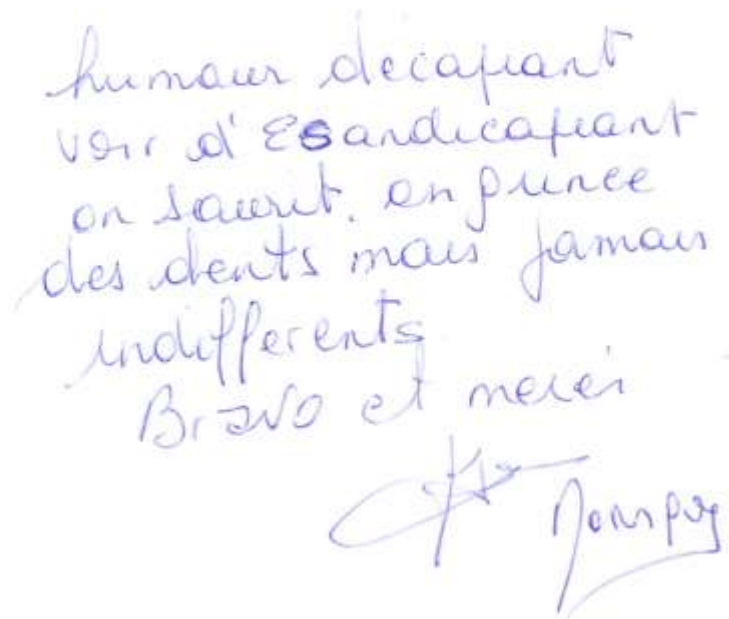 humour décapant
voir d'ESandicapant
on sourit, on grince
des dents mais jamais
indifférents
Bravo et merci